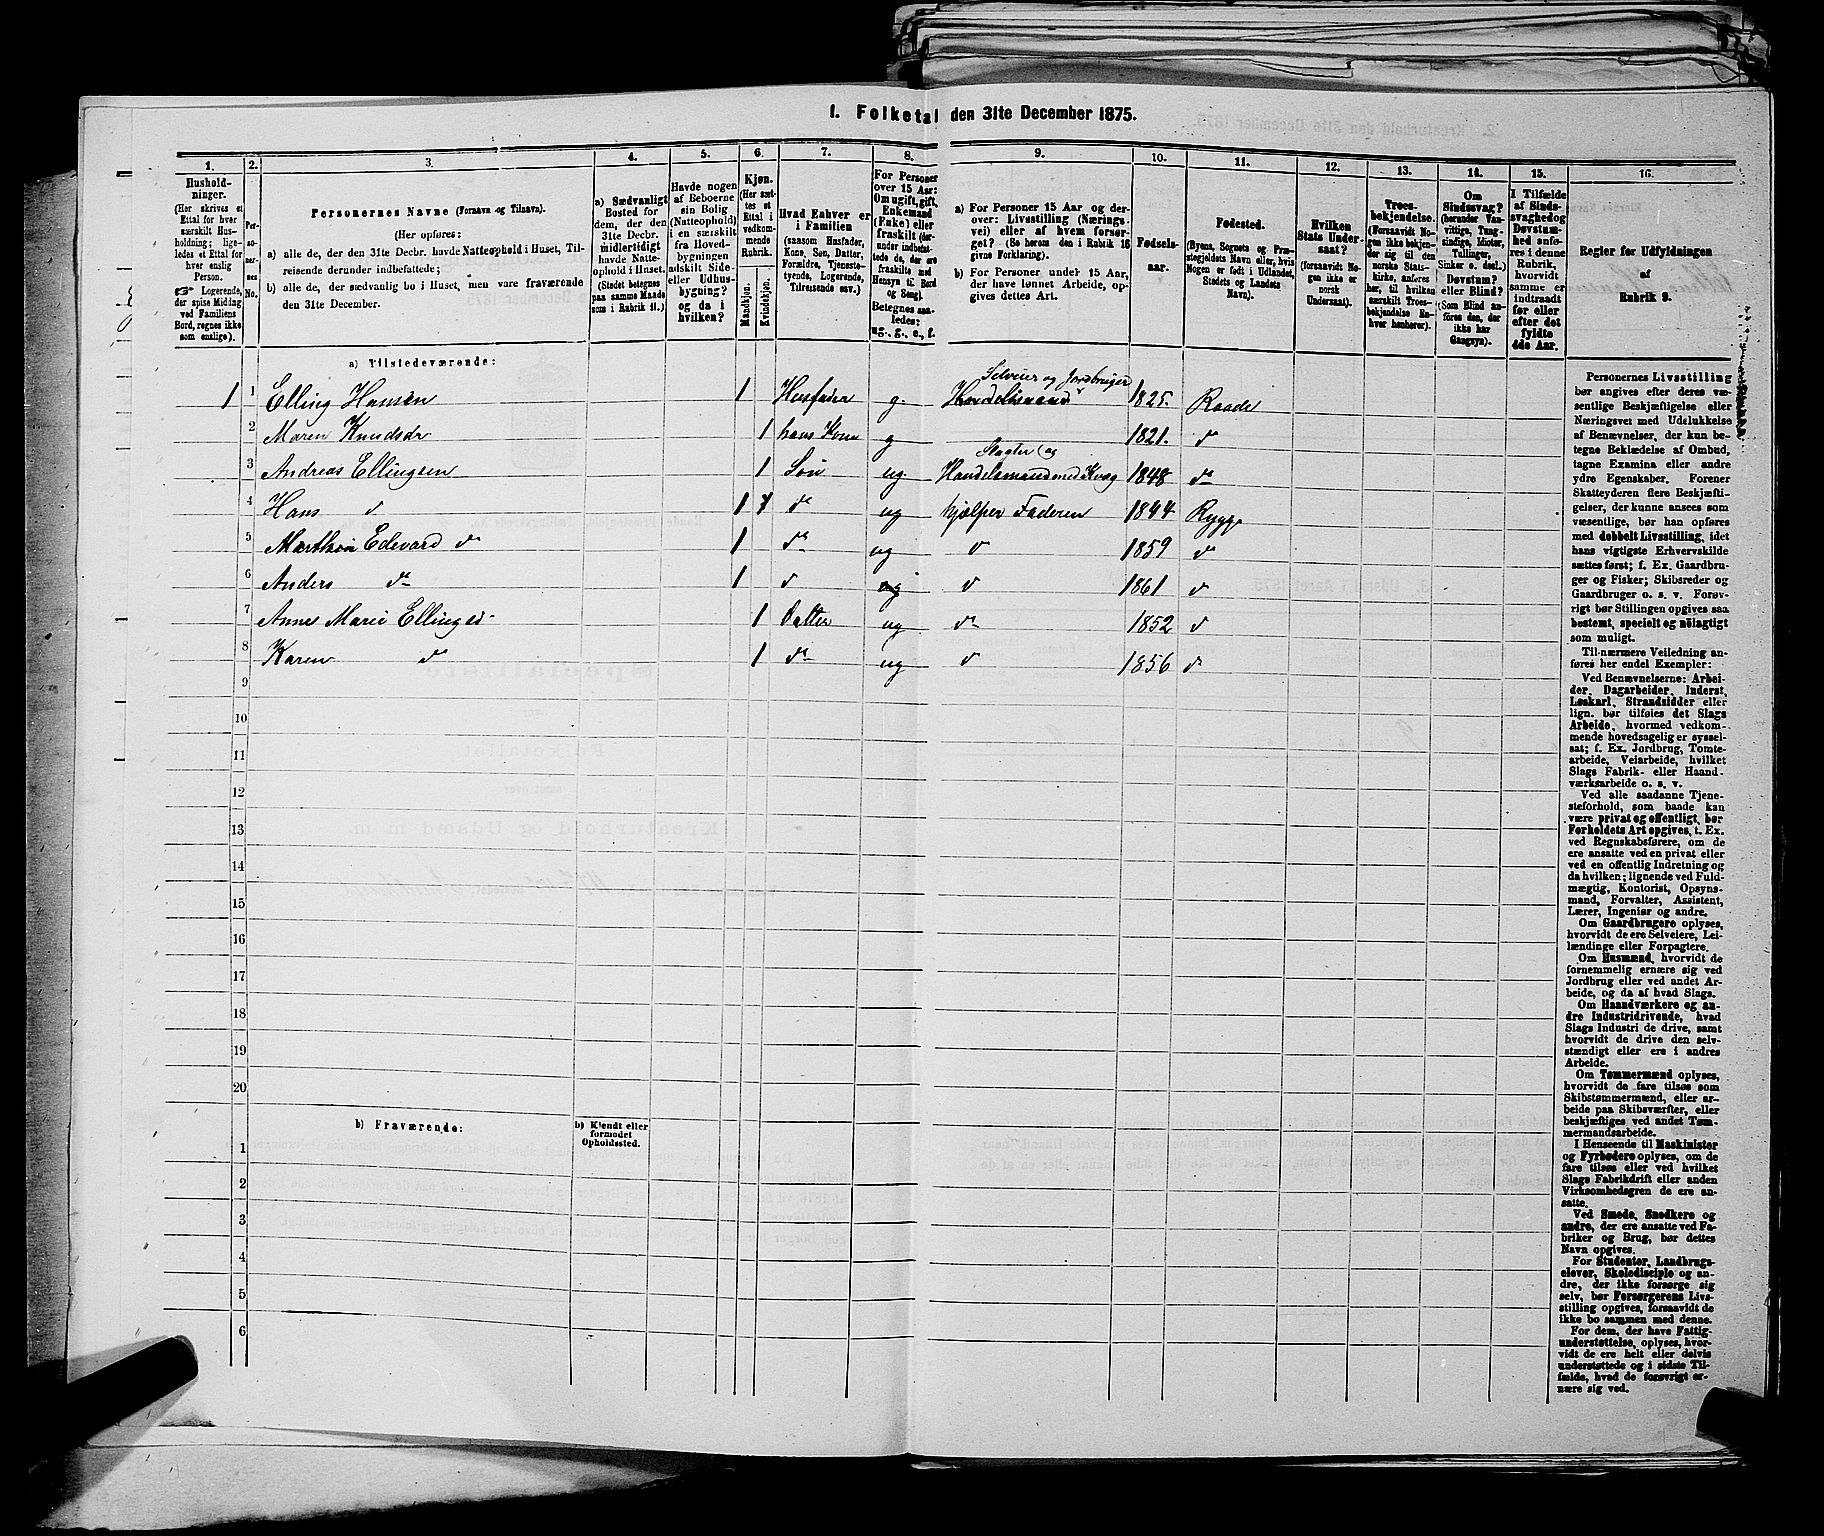 1. Folketal den 31te December 1875.
1.
2.
3.
4.
5.
6.
7.
8.
9.
10.
11.
12.
13.
14.
15.
16.
Hushold-
ninger.
(Her skrives et
Ettal for hver
særskilt Hus-
holdning; lige-
ledes et Ettal
for hver
enslig
Person.
☞ Logerende,
der spise Middag
ved Familiens
Bord, regnes ikke
som enslige).
Per-
so-
ner-
nes
No.
Personernes Navne (Fornavn og Tilnavn).
(Her opføres:
a) alle de, der den 31te Decbr. havde Natteophold i Huset, Til-
reisende derunder indbefattede;
b) alle de, der sædvanlig bo i Huset, men vare fraværende
den 31te December.
a) Sædvanligt
Bosted for
dem, der den
31te Decbr.
midlertidigt
havde Natte-
ophold i Huset.
(Stedet betegnes
paa samme Maade
som i Rubrik 11.)
Havde nogen
af Beboerne
sin Bolig
(Natteophold)
i en særskilt
fra Hoved-
bygningen
adskilt Side-
eller Udhus-
bygning?
og da i
hvilken?
Kjøn.
(Her sæt-
tes et
Ettal i
vedkom-
mende
Rubrik.
Mandkjøn.
Kvindekjøn.
Hvad Enhver er
i Familien
(saasom Husfader,
Kone, Søn, Datter,
Forældre, Tjeneste-
tyende, Logerende,
Tilreisende osv.)
For Personer
over 15 Aar:
Om ugift, gift,
Enkemand
(Enke) eller
fraskilt (der-
under indbefat-
tede de, der ere
fraskilte med
Hensyn til Bord
og Seng).
Betegnes saa-
ledes:
ug., g., e., f.
a) For Personer 15 Aar og der-
over: Livsstilling (Nærings-
vei) eller af hvem forsør-
get? (Se herom den i Rubrik 16
givne Forklaring).
b) For Personer under 15 Aar,
der have lønnet Arbeide, op-
gives dettes Art.
Fødsels-
aar.
Fødested.
(Byens, Sognets og Præ-
stegjeldets Navn eller, hvis
Nogen er født i Udlandet,
Stedets og Landets
Navn).
Hvilken
Stats Under-
saat?
(forsaavidt No-
gen ikke er
norsk
Undersaat).
Troes-
bekjendelse.
(Forsaavidt No-
gen ikke bekjen-
der sig til den
norske Stats-
kirke, anføres
her, til hvilken
særskilt Troes-
bekjendelse En-
hver henhører).
Om
Sindssvag?
(herunder Van-
vittige, Tung-
sindige, Idioter,
Tullinger,
Sinker o. desl.)
Døvstum?
eller Blind?
(Som Blind an-
føres den, der
ikke har
Gangsyn).
I Tilfælde
af Sinds-
svaghed og
Døvstum-
hed anfø-
res i denne
Rubrik,
hvorvidt
samme er
indtraadt
før eller
efter det
fyldte
4de Aar.
Regler for Udfyldningen
af
Rubrik 9.
a) Tilstedeværende:
1 1 Elling Hansen 1 Husfader g. Selveier og Jordbruger Handelsmand 1825. Raade
2 Maren Knudsdr 1 hans Kone g 1821. do
3 Andreas Ellingsen 1 Søn ug Slagter og Handelsmand med Kvæg 1848 do
4 Hans do 1 1 do ug hjælper Faderen 1844 Rygge
5 Marthin Edevard do 1 do ug do 1859 do
6 Anders do 1 do ug do 1861 do
7 Anne Marie Ellingsd 1 Datter ug do 1852 do
8 Karen do 1 do ug do 1856 do
9
10
11
12
13
14
15
16
17
18
19
20
b) Fraværende:
b) Kjendt eller
formodet
Opholdssted.
1
2
3
4
5
6
Personernes Livsstilling
bør angives efter deres væ-
sentlige Beskjæftigelse eller
Næringsvei med Udelukkelse
af Benævnelser, der kun be-
tegne Beklædelse af Ombud,
tagne Examina eller andre
ydre Egenskaber. Forener
Skatteyderen flere Beskjæfti-
gelser, der kunne ansees som
væsentlige, bør han opføres
med dobbelt Livsstilling, idet
hans vigtigste Erhvervskilde
sættes først; f. Ex. Gaardbru-
ger og Fisker; Skibsreder og
Gaardbruger o. s. v. Forøv-
rigt bør Stillingen opgives saa
bestemt, specielt og nøiagtigt
som muligt.
Til nærmere Veiledning an-
føres her endel Exempler:
Ved Benævnelserne: Arbei-
der, Dagarbeider, Inderst,
Løskarl, Strandsidder eller
lign. bør tilføies det Slags
Arbeide, hvormed vedkom-
mende hovedsagelig er syssel-
sat; f. Ex. Jordbrug, Tomte-
arbeide, Veiarbeide, hvilket
Slags Fabrik- eller Haand-
værksarbeide o. s. v.
Ved alle saadanne Tjene-
steforhold, som baade kan
være privat og offentligt, bør
Forholdets Art opgives, t. Ex.
ved Regnskabsførere, om de
ere ansatte ved en privat eller
ved en offentlig Indretning og
da hvilken; lignende ved Fuld-
mægtig, Kontorist, Opsyns-
mand, Forvalter, Assistent,
Lærer, Ingeniør og andre.
Om Gaardbrugere oplyses,
hvorvidt de ere Selveiere, Lei-
lændinge eller Forpagtere.
Om Husmænd, hvorvidt de
fornemmelig ernære sig ved
Jordbrug eller ved andet Ar-
beide, og da af hvad Slags.
Om Haandværkere og an-
dre Industridrivende, hvad
Slags Industri de drive, samt
hvorvidt de drive den selv-
stændigt eller ere i andres
Arbeide.
Om Tømmermænd oplyses,
hvorvidt de fare tilsøs som
Skibstømmermænd, eller ar-
beide paa Skibsværfter, eller
beskjæftiges ved andet Tøm-
mermandsarbeide.
I Henseende til Maskinister
og Fyrbødere oplyses, om de
fare tilsøs eller ved hvilket
Slags Fabrikdrift eller anden
Virksomhedsgren de ere an-
satte.
Ved Smede, Snedkere og
andre, der ere ansatte ved Fa-
briker og Brug, bør dettes
Navn opgives.
For Studenter, Landbrugs-
elever, Skoledisciple og an-
dre, der ikke forsørge sig
selv, bør Forsørgerens Livs-
stilling opgives, forsaavidt de
ikke bo sammen med denne.
For dem, der have Fattig-
understøttelse, oplyses, hvor-
vidt de ere helt eller delvis
understøttede og i sidste Til-
fælde, hvad de forøvrigt er-
nære sig ved.